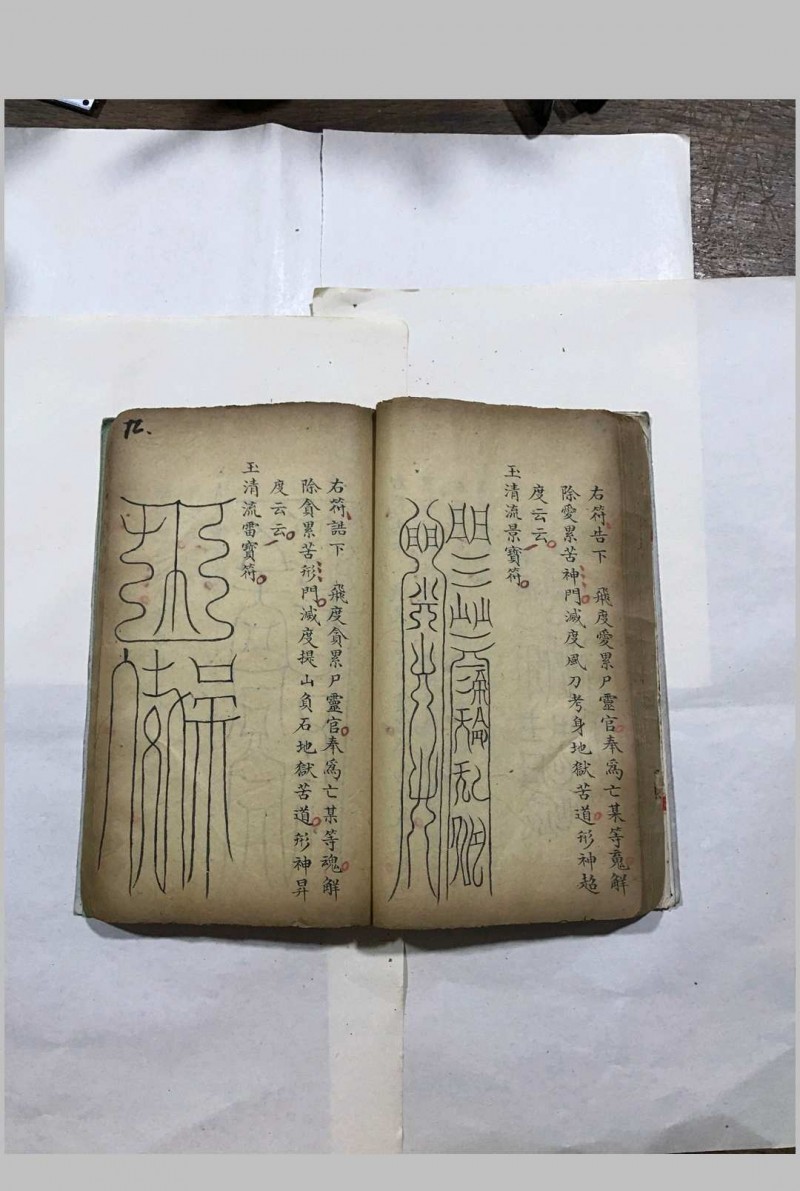 右符告下　飛度愛累尸靈官奉爲亡某等魂解
除愛累苦神門減度風刀考身地獄苦道形神超
度云云
玉清流景寶符
右符誥下　飛度貪累尸靈官奉爲亡某等魂解
除貪累苦形門減度提山負石地獄苦道形神昇
度云云
玉清流雷寶符